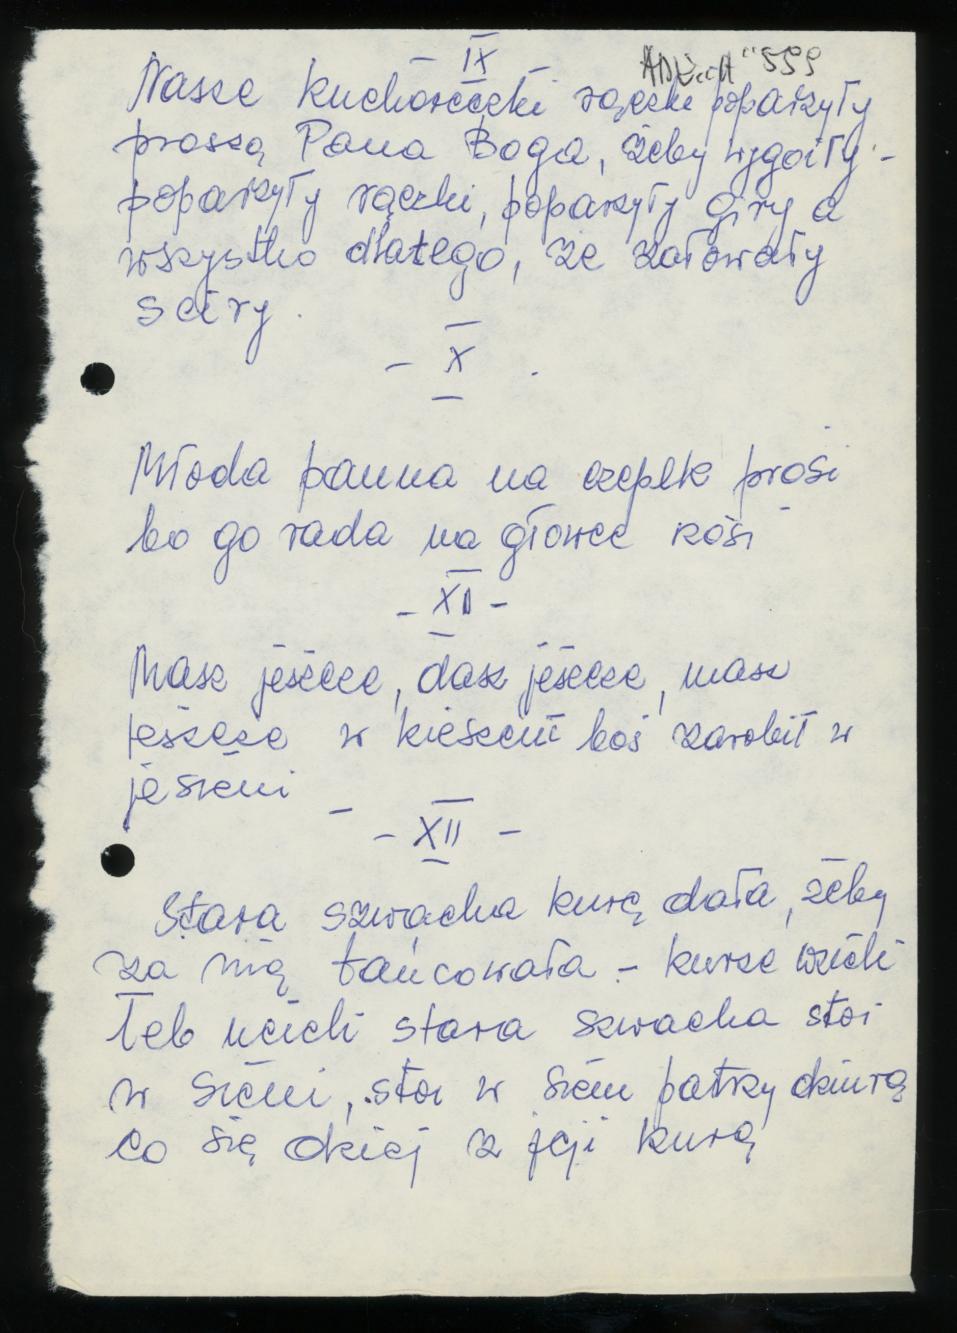 - IX -
Nasze kuchareczki rączki poparzyły
proszą Pana Boga, żeby wygoiły -
poparzyły rączki, poparzyły giry a
wszystko dlatego, że żałowały
sciry.
- X -
Młoda panna na czepek prosi
bo go rada na głowce nosi
- XI -
Masz jeszcze, dasz jeszcze, masz
jeszcze w kieszeni boś zarobił w
jesieni -
- XII -
Stara szwacha kurę dała, żeby
za nią tańcowała - kurze wzieli
łeb ucieli stara szwacha stoi
w sieni, stoi w sieni patrzy dziurą
co się dziej z jeji kurą